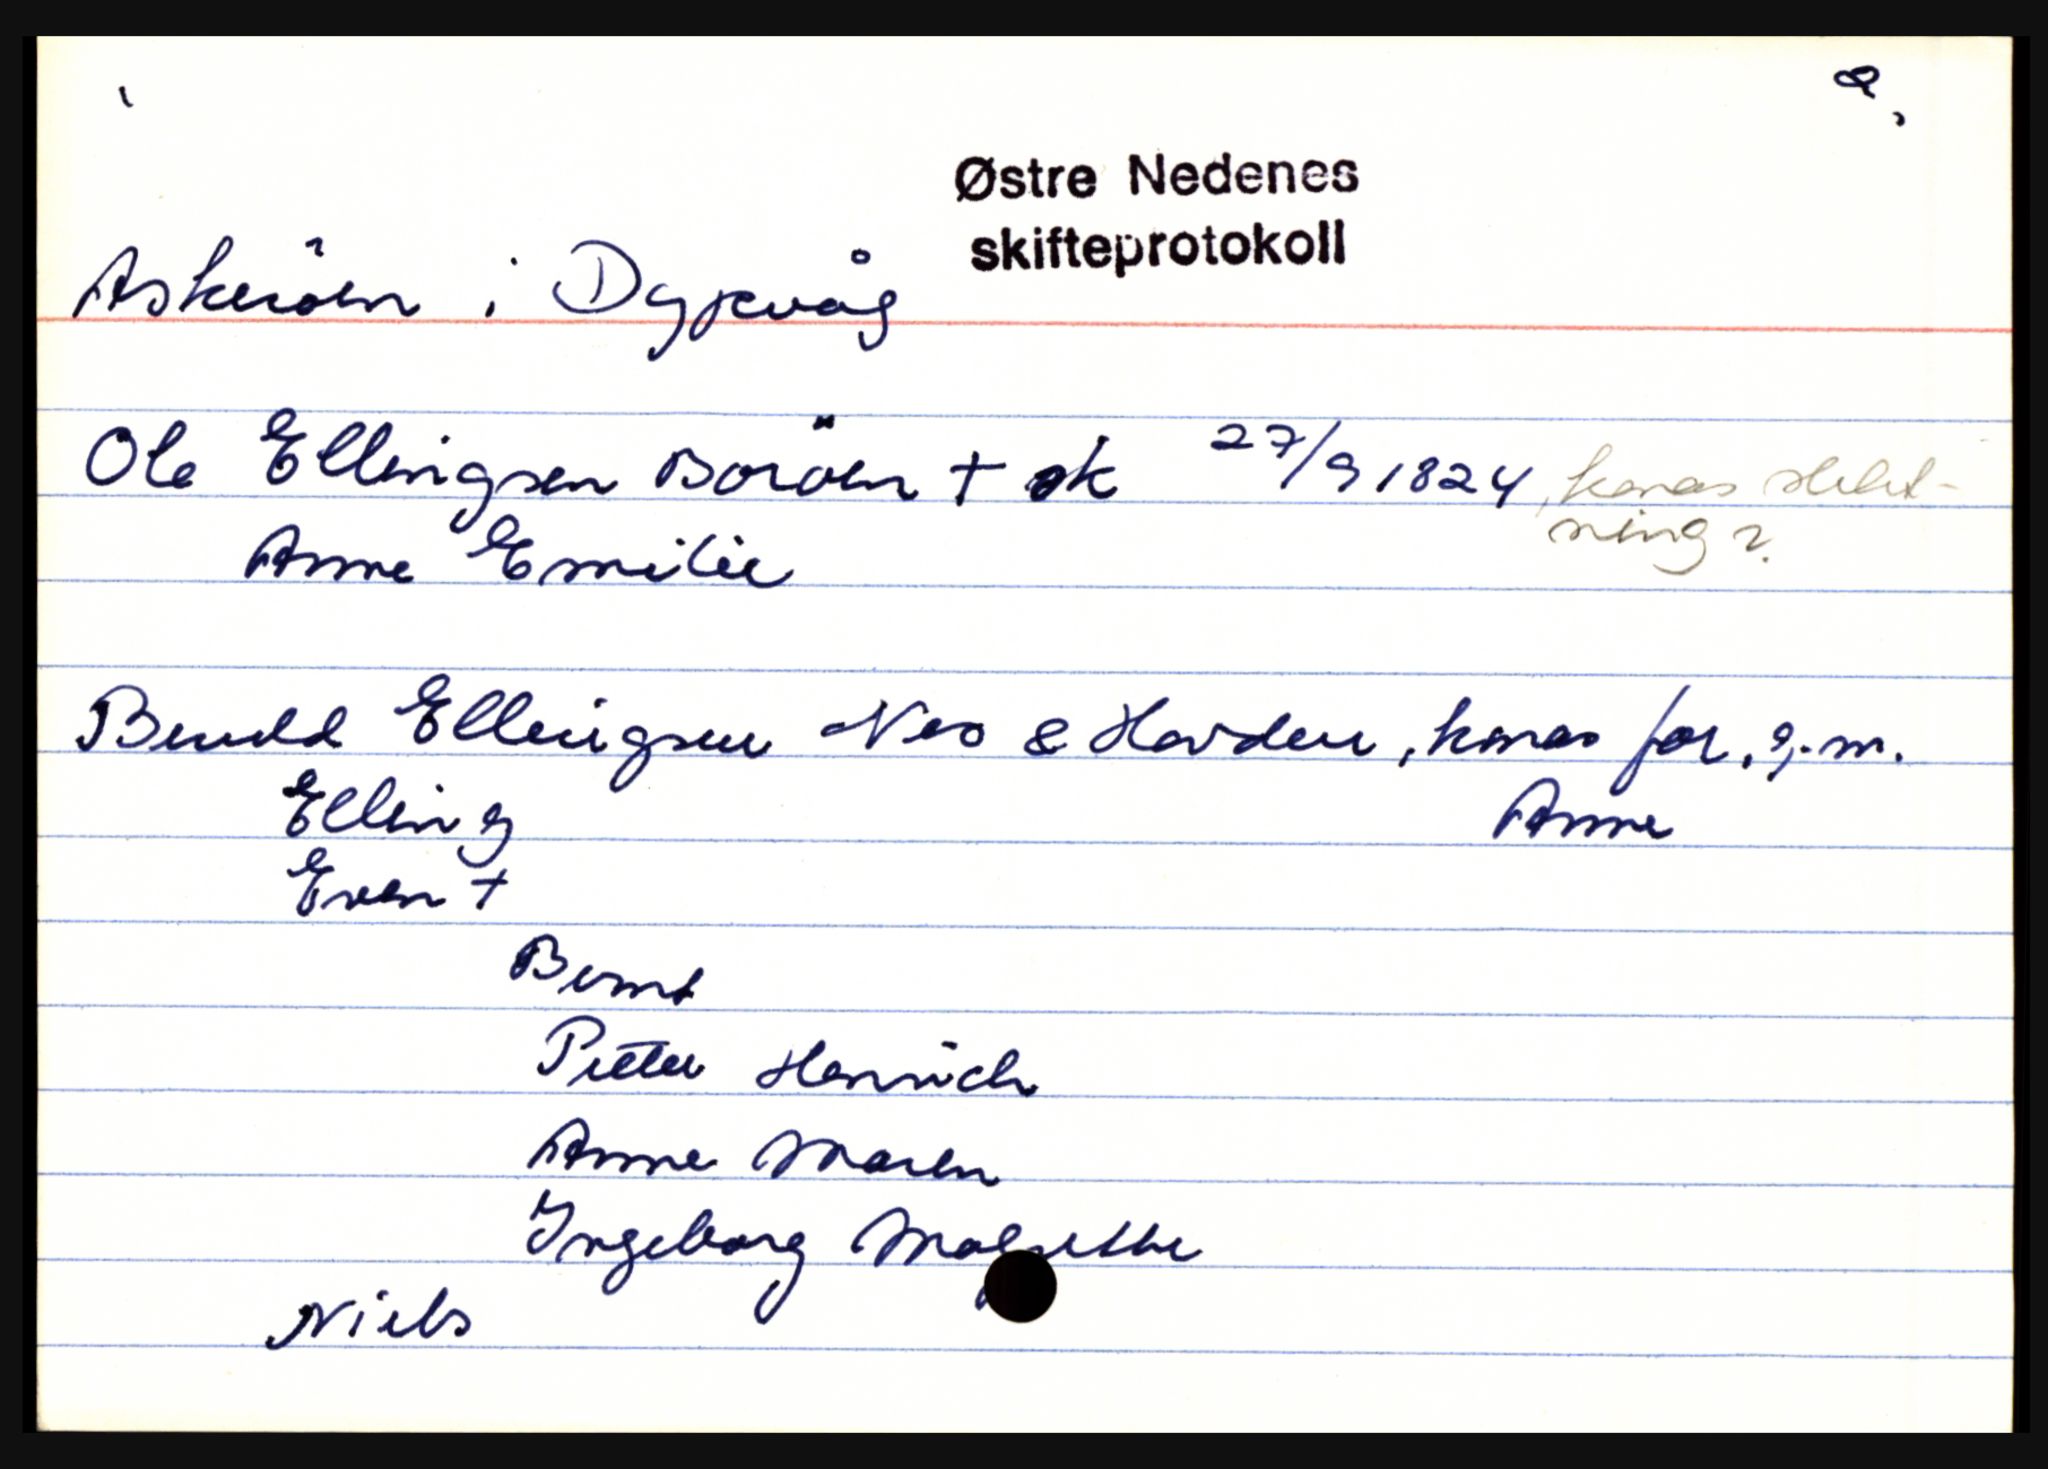 Østre Nedenes
skifteprotokoll
Askerøen i Dypvåg
Ole Ellingsen Borøen + sk 27/9 1824, konas slekt-
ning?
Anne Emilie
Ellingsen Nes & Havden, konas far, g.m.
Elling Anne
Even +
Bernt
Petter Henrich
Anne Maren
Ingeborg Malgrethe
Niels